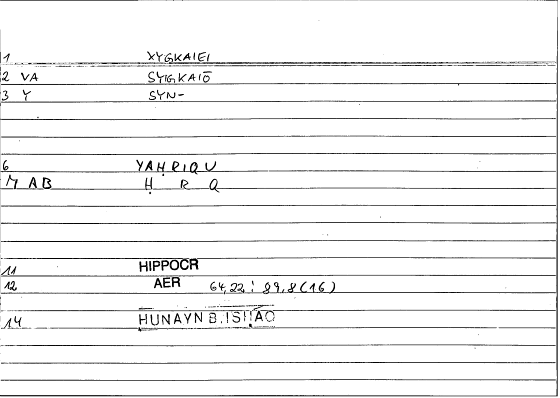 1 XYGKAIEI
2 VA SYGKAIŌ
3 Y SYN-
6 YAḤRIQU
M AB Ḥ R Q
11 HIPPOCR
12 AER 64,22 : 89,8 (16)
14 HUNAYN B. ISḤĀQ